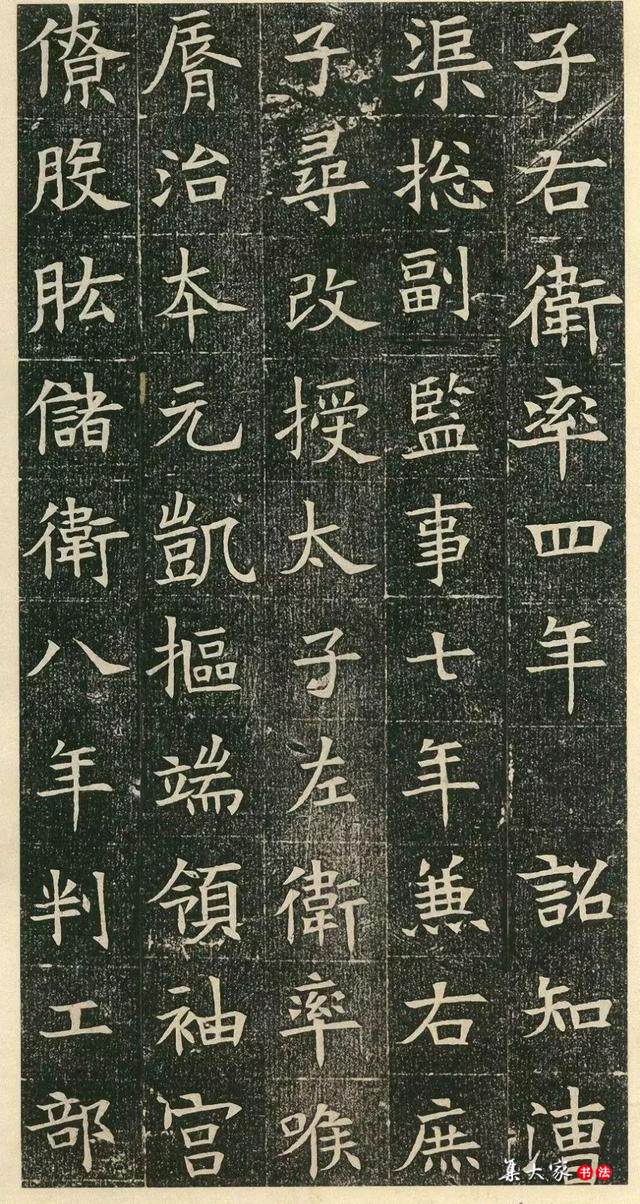 子右衛率四年 詔知漕
渠揔副監事七年兼右庶
子尋改授太子左衛率喉
脣治本元凱摳端領袖宮
僚股肱儲衛八年判工部
集大家书法